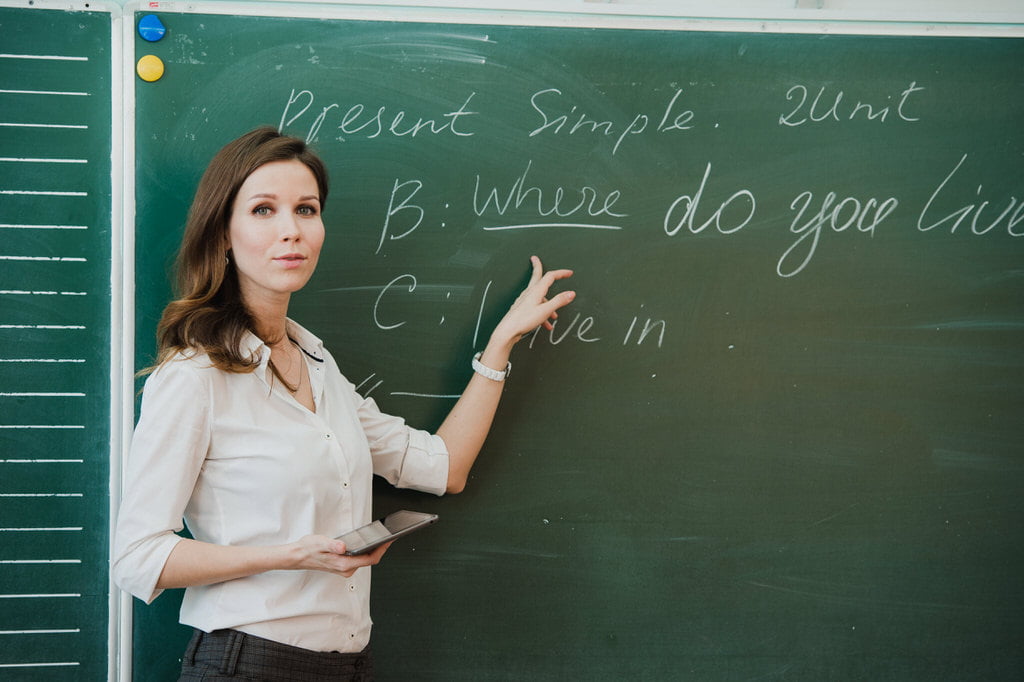 Present Simple. 2Unit
B: Where do you live
C: I live in